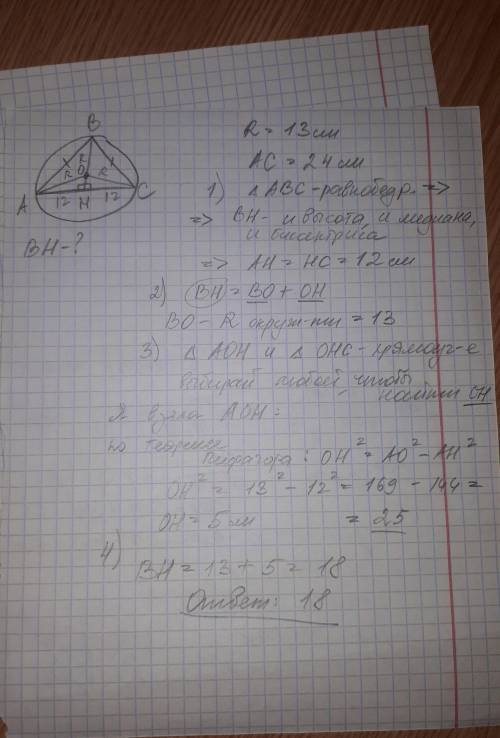 B
R
O
R R
A 12 H 12 C
BH-?
R = 13 см
AC = 24 см
1) △ ABC - равнобедр. =>
=> BH - и высота, и медиана,
и биссектриса
=> AH = HC = 12 см
2) BH = BO + OH
BO - R окруж-ти = 13
3) △ AOH и △ OHC - прямоуг-е
выбирай любой, чтобы
найти OH
Я взяла AOH:
по теореме
Пифагора: OH² = AO² - AH²
OH² = 13² - 12² = 169 - 144 =
OH = 5 см = 25
4)
BH = 13 + 5 = 18
Ответ: 18